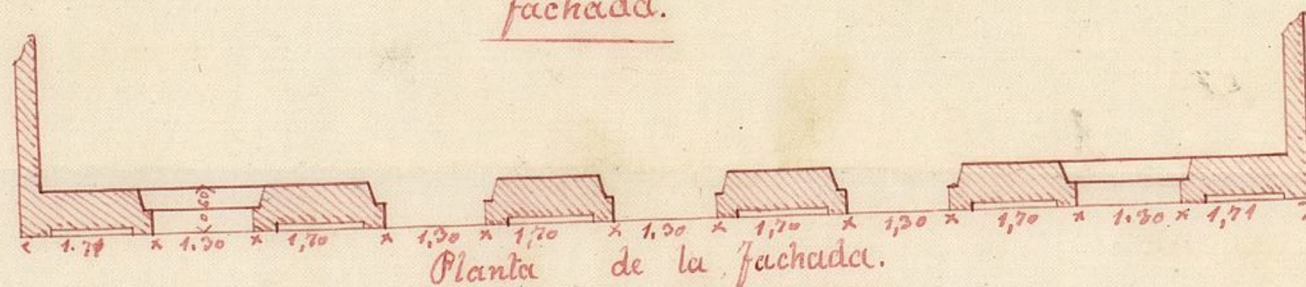 fachada.
0,50
1.71 1.30 1,70 1,30 1,70 1.30 1,70 1,30 1,70 1.30 1,71
Planta de la fachada.